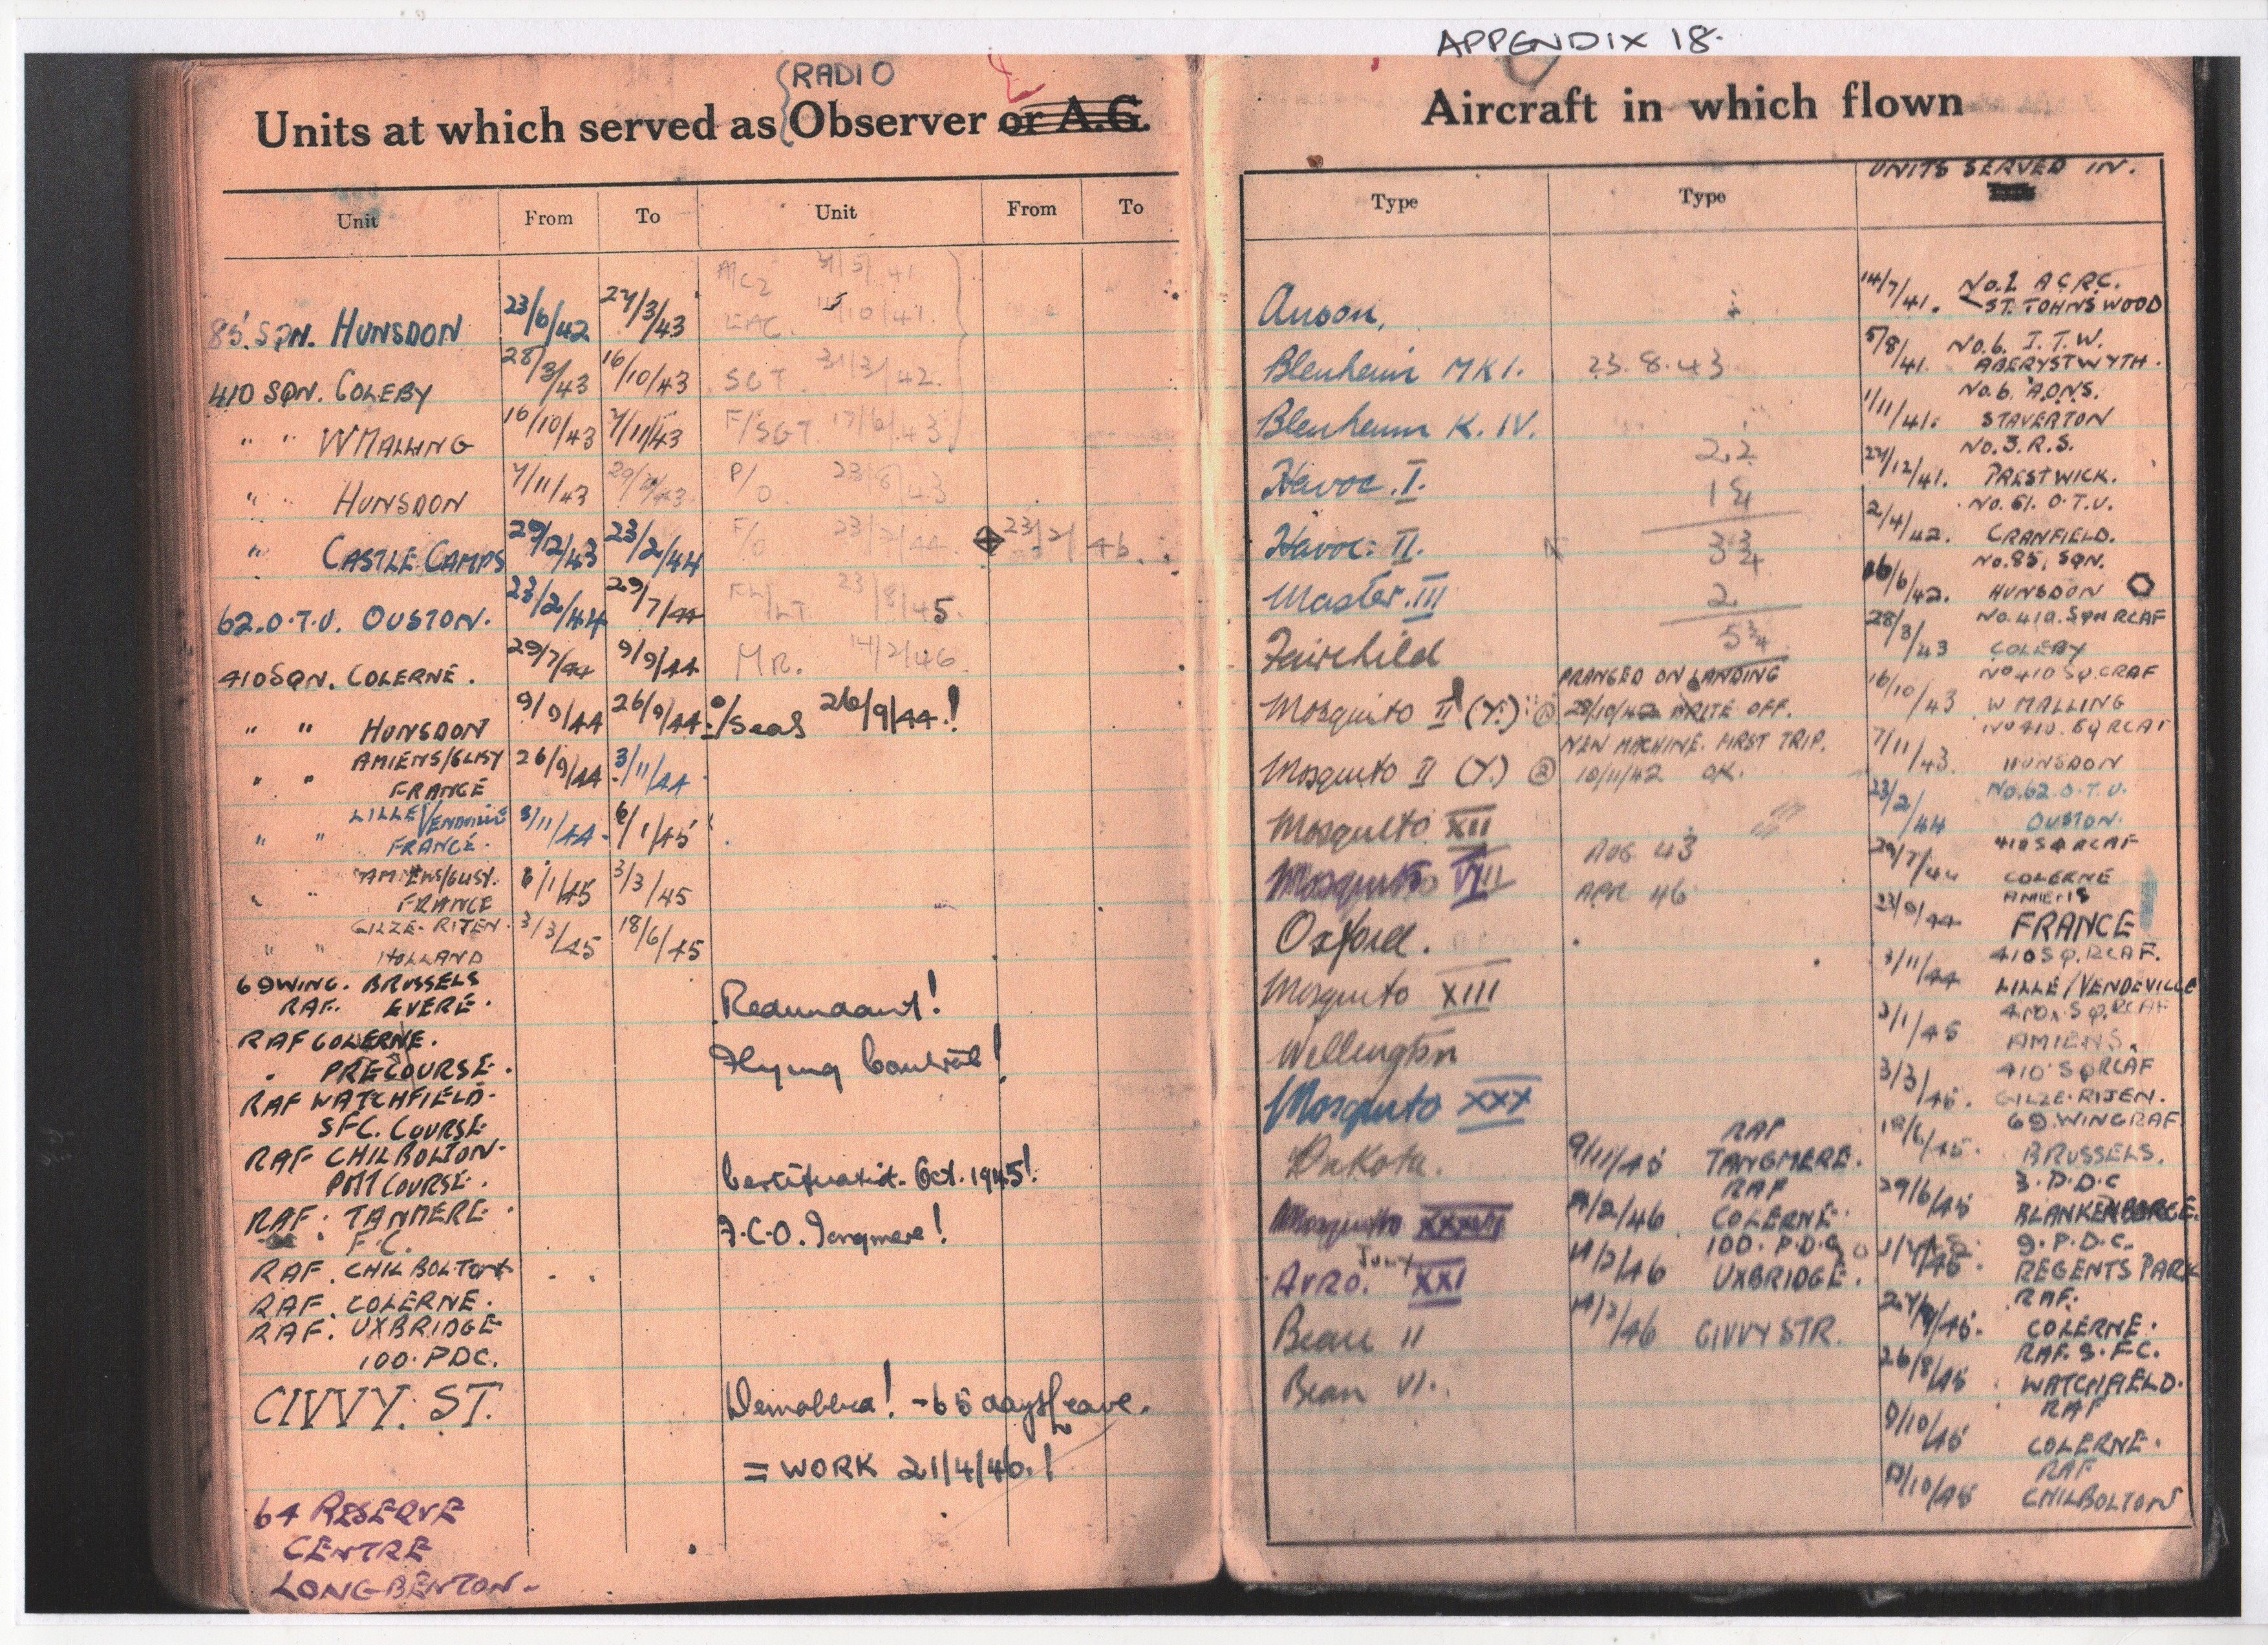 APPENDIX 18.
RADIO
Units at which served as Observer or A.G.
Unit From To Unit From To
A/C2 31/5/41
LAC. /10/41.
85. SQN. HUNSDON 23/6/42 27/3/43
410 SQN. COLEBY 28/3/43 16/10/43 SGT. 31/3/42.
" " W MALLING 16/10/43 7/11/43 F/SGT 17/6/43
" " HUNSDON 7/11/43 29/12/43 P/O. 23/6/43
" CASTLE CAMPS 29/12/43 23/2/44 F/O 23/2/44 23/2/46.
62. O.T.U. OUSTON. 23/2/44 29/7/44 FL/LT. 23/8/45.
410 SQN. COLERNE. 29/7/44 9/9/44 MR. 14/2/46
" " HUNSDON 9/9/44 26/9/44 o/seas 26/9/44.!
" " AMIENS/GLISY 26/9/44 3/11/44
FRANCE
" " LILLE/VENDEVILLE 3/11/44. 6/1/45
FRANCE.
" " AMIENS/GLISY. 6/1/45 3/3/45
FRANCE
" " GILZE-RIJEN. 3/3/45 18/6/45
HOLLAND
69 WING. BRUSSELS
RAF. EVERE. Redundant!
RAF COLERNE.
" PRECOURSE. Flying Control!
RAF WATCHFIELD.
SFC. COURSE.
RAF CHILBOLTON.
POST COURSE. Certificated. Oct. 1945!
RAF. TANMERE.
F.C. F.C.O. Tangmere!
RAF. CHILBOLTON
RAF. COLERNE.
RAF. UXBRIDGE
100. PDC.
CIVVY. ST. Demobbed! - 65 days Leave.
= WORK 21/4/46.!
64 RESERVE
CENTRE
LONGBENTON-
Aircraft in which flown
Type Type UNITS SERVED IN.
Anson,
Blenheim MK I. 23.8.43
Blenheim K. IV.
Havoc. I.
Havoc. II.
Master. III
Fairchild
Mosquito II (Y.) ① PRANGED ON LANDING
28/10/42 WRITE OFF.
Mosquito II (Y.) ② NEW MACHINE. FIRST TRIP.
10/11/42 OK.
Mosquito XII
Mosquito VIII AUG 43
APR 46
Oxford.
Mosquito XIII
Wellington
Mosquito XXX
Dakota. 9/11/45 RAF TANGMERE.
Mosquito XXXVI /2/46 RAF COLERNE.
Avro. July XXI 14/2/46 100. P.D.C UXBRIDGE.
Beau II 14/2/46 CIVVY STR.
Beau VI.
14/7/41. No. 1 A.C.R.C.
ST. JOHNS WOOD
5/8/41. No. 6. I.T.W.
ABERYSTWYTH.
1/11/41. No. 6. AONS.
STAVERTON
27/12/41. No. 3. R.S.
PRESTWICK.
2/4/42. No. 61. O.T.U.
CRANFIELD.
/6/42. No. 85, SQN.
HUNSDON
28/3/43 No. 410. SQN RCAF
COLEBY
16/10/43 No 410 SQ. CRAF
W MALLING
7/11/43. No 410. SQ RCAF
HUNSDON
23/2/44 No. 62. O.T.U.
OUSTON.
29/7/44 410 SQ RCAF
COLERNE
23/9/44 AMIENS
FRANCE
3/11/44 410 SQ. RCAF.
LILLE/VENDEVILLE
3/1/45 410. SQ. RCAF
AMIENS.
3/3/45. 410 SQ RCAF
GILZE-RIJEN.
18/6/45. 69. WING RAF
BRUSSELS.
29/6/45 3. P.D.C
BLANKENBERGE.
9. P.D.C.
REGENTS PARK
RAF.
COLERNE.
26/8/45 RAF. S.F.C.
WATCHFIELD.
/10/45 RAF
COLERNE.
/10/45 RAF
CHILBOLTON